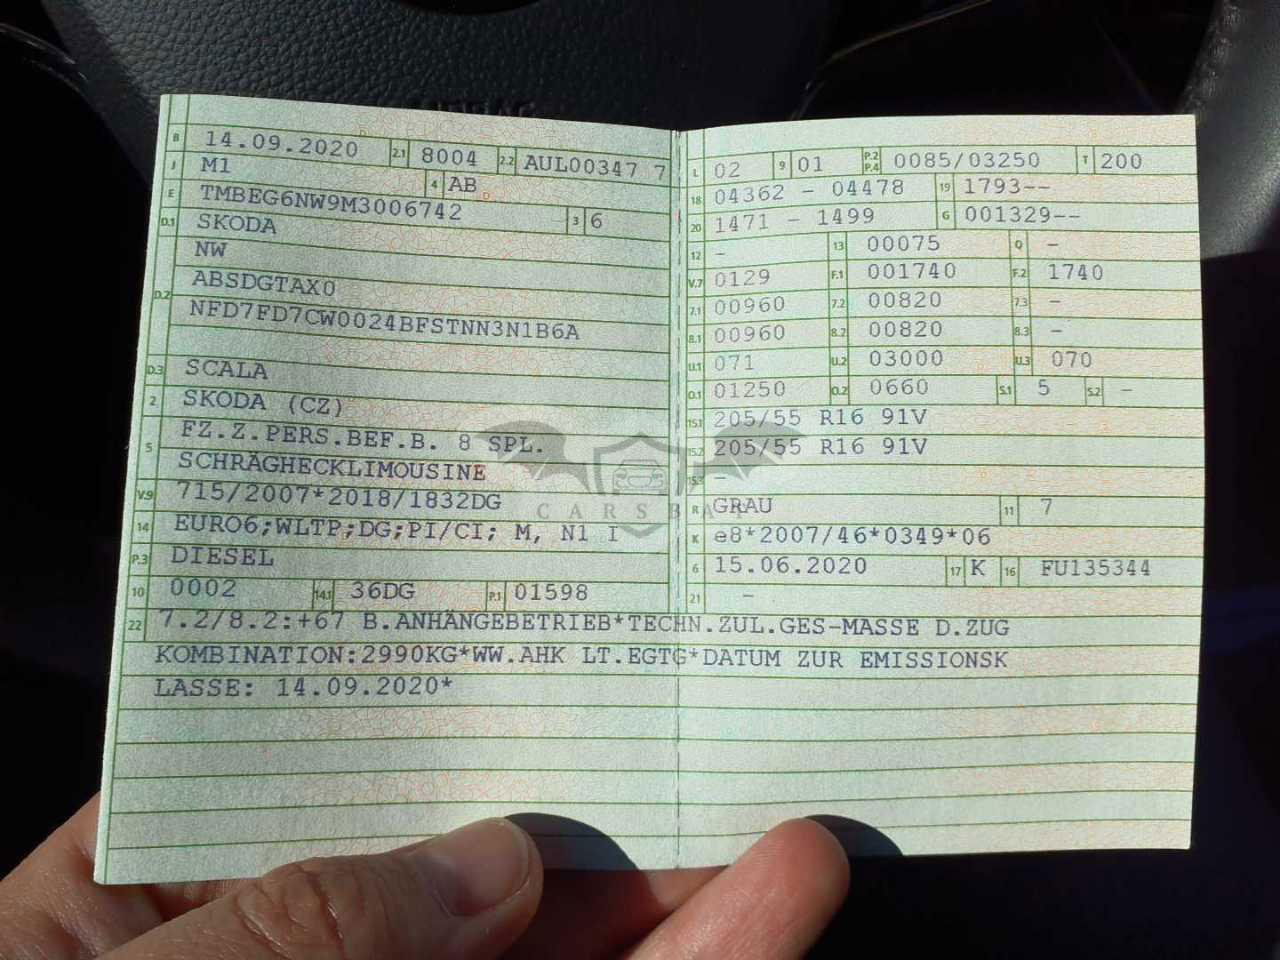 B 14.09.2020 2.1 8004 2.2 AUL00347 7
J M1 4 AB
E TMBEG6NW9M3006742 3 6
D.1 SKODA
NW
D.2 ABSDGTAX0
NFD7FD7CW0024BFSTNN3N1B6A
D.3 SCALA
2 SKODA (CZ)
5 FZ.Z.PERS.BEF.B. 8 SPL.
SCHRÄGHECKLIMOUSINE
V.9 715/2007*2018/1832DG
14 EURO6;WLTP;DG;PI/CI; M, N1 I
P.3 DIESEL
10 0002 14.1 36DG P.1 01598
L 02 9 01 P.2 P.4 0085/03250 T 200
18 04362 - 04478 19 1793--
20 1471 - 1499 G 001329--
12 - 13 00075 Q -
V.7 0129 F.1 001740 F.2 1740
7.1 00960 7.2 00820 7.3 -
8.1 00960 8.2 00820 8.3 -
U.1 071 U.2 03000 U.3 070
O.1 01250 O.2 0660 S.1 5 S.2 -
15.1 205/55 R16 91V
15.2 205/55 R16 91V
15.3 -
R GRAU 11 7
K e8*2007/46*0349*06
6 15.06.2020 17 K 16 FU135344
21 -
22 7.2/8.2:+67 B.ANHÄNGEBETRIEB*TECHN.ZUL.GES-MASSE D.ZUG
KOMBINATION:2990KG*WW.AHK LT.EGTG*DATUM ZUR EMISSIONSK
LASSE: 14.09.2020*
CARSBAT